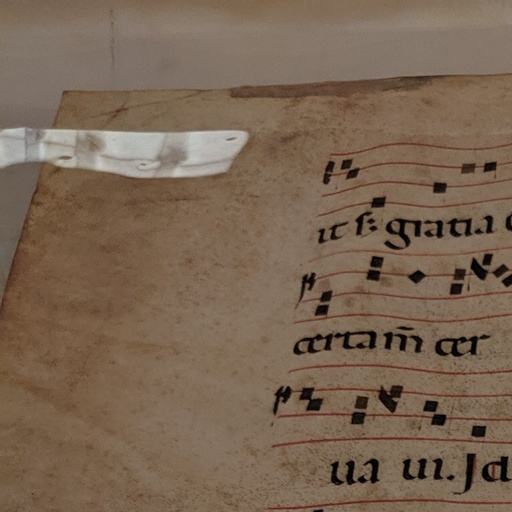 it s: gratia
certam̄ cer
ua ui. Id